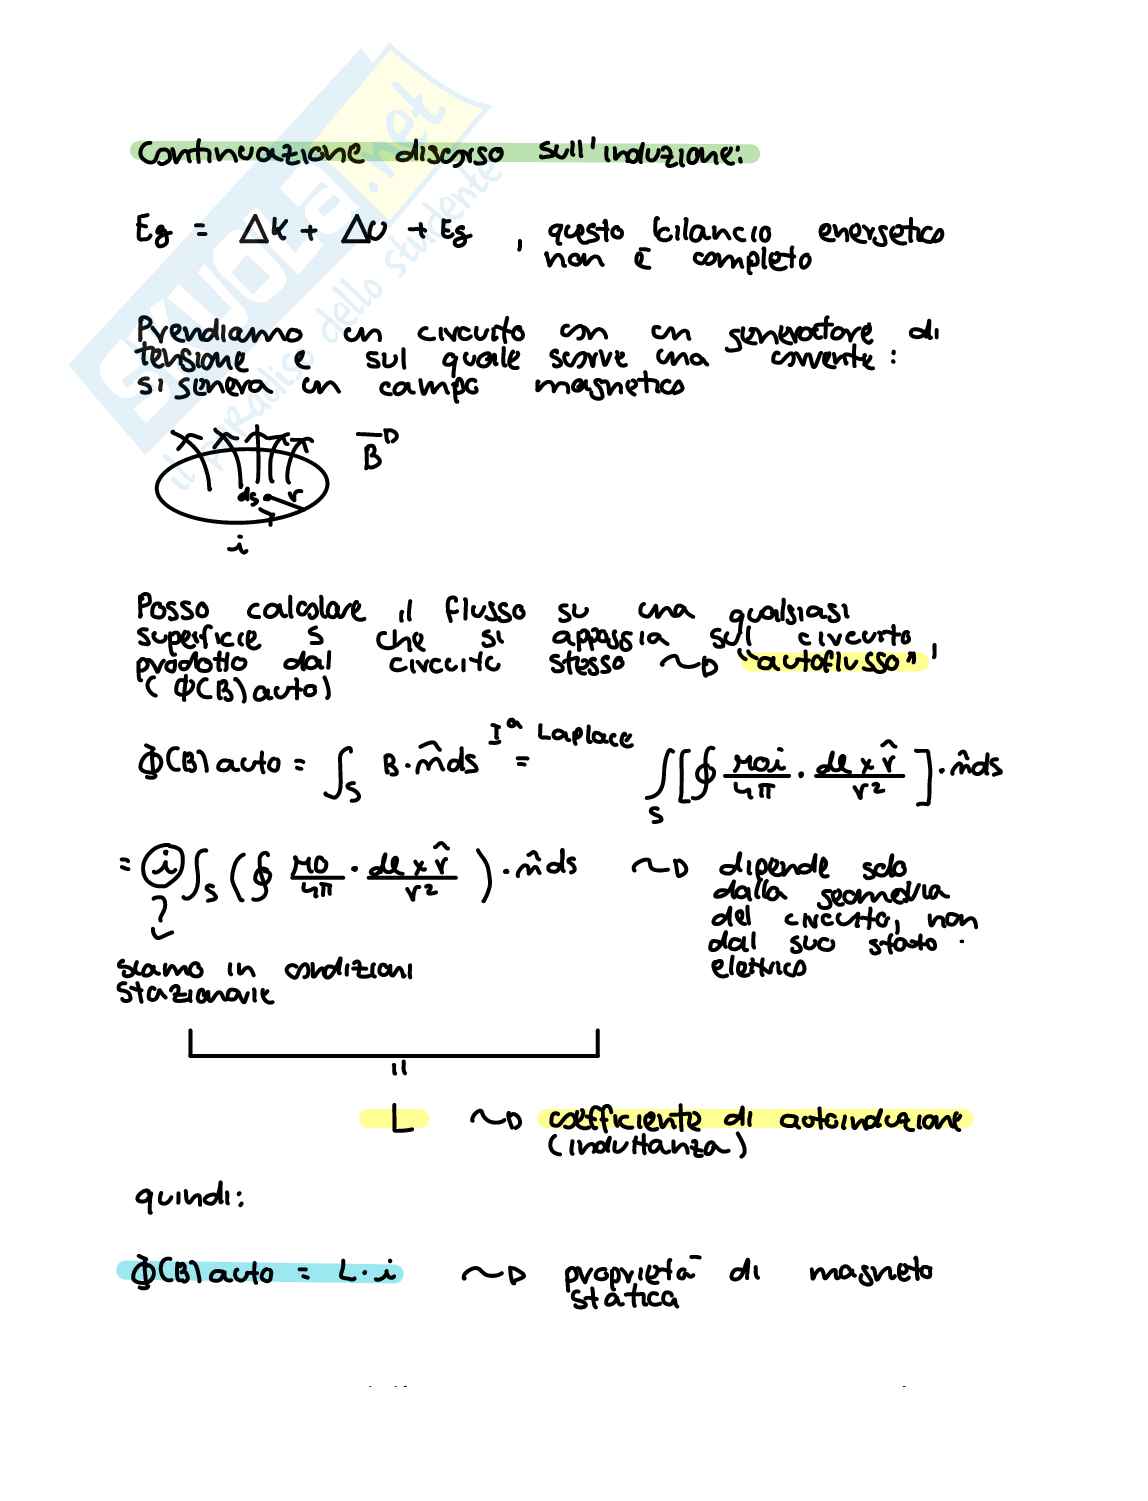 Continuazione discorso sull'induzione:
Eg = ΔK + ΔU + Eg , questo bilancio energetico
non è completo
Prendiamo un circuito con un generatore di
tensione e sul quale scorre una corrente:
si genera un campo magnetico
B
ds r
i
Posso calcolare il flusso su una qualsiasi
superficie S che si appoggia sul circuito,
prodotto dal circuito stesso ~> "autoflusso"
(Φ(B)auto)
Φ(B)auto = ∫_S B · n̂ ds = (Iª Laplace) ∫_S [∮ μ0i/4π · dl x r̂/r²] · n̂ ds
= i ∫_S (∮ μ0/4π · dl x r̂/r²) · n̂ ds ~> dipende solo
dalla geometria
del circuito, non
dal suo stato
elettrico
siamo in condizioni
stazionarie
L ~> coefficiente di autoinduzione
(induttanza)
quindi:
Φ(B)auto = L · i ~> proprietà di magneto
statica
SKUOLA.net
il paradiso dello studente